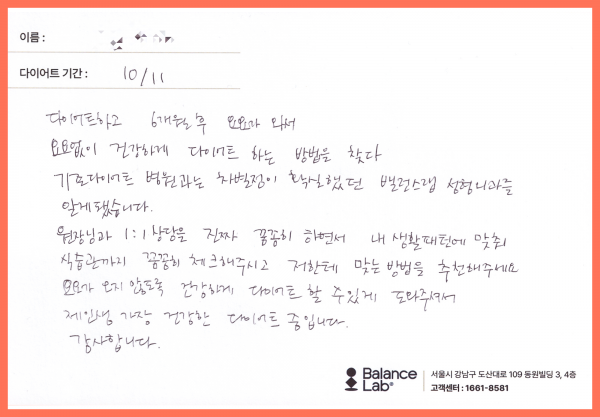 이름 :
다이어트 기간 : 10/11
다이어트하고 6개월후 요요가 와서
요요없이 건강하게 다이어트 하는 방법을 찾다
기존다이어트 병원과는 차별점이 확실했던 밸런스랩 성형외과를
알게됐습니다.
원장님과 1:1 상담을 진짜 꼼꼼히 하면서 내 생활패턴에 맞춰
식습관까지 꼼꼼히 체크해주시고 저한테 맞는 방법을 추천해주세요
요요가 오지 않도록 건강하게 다이어트 할 수있게 도와주셔서
제인생 가장 건강한 다이어트 중입니다.
감사합니다.
Balance Lab®
서울시 강남구 도산대로 109 동원빌딩 3, 4층
고객센터 : 1661-8581